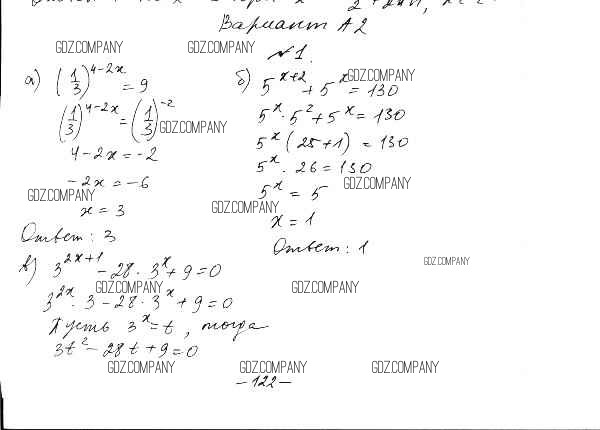 Вариант А2
№1.
а) (1/3)^(4-2x) = 9
(1/3)^(4-2x) = (1/3)^(-2)
4-2x = -2
-2x = -6
x = 3
Ответ: 3
б) 5^(x+2) + 5^x = 130
5^x · 5^2 + 5^x = 130
5^x (25+1) = 130
5^x · 26 = 130
5^x = 5
x = 1
Ответ: 1
в) 3^(2x+1) - 28 · 3^x + 9 = 0
3^(2x) · 3 - 28 · 3^x + 9 = 0
Пусть 3^x = t, тогда
3t^2 - 28t + 9 = 0
-122-
GDZ.COMPANY
GDZ.COMPANY
GDZ.COMPANY
GDZ.COMPANY
GDZ.COMPANY
GDZ.COMPANY
GDZ.COMPANY
GDZ.COMPANY
GDZ.COMPANY
GDZ.COMPANY
GDZ.COMPANY
GDZ.COMPANY
GDZ.COMPANY